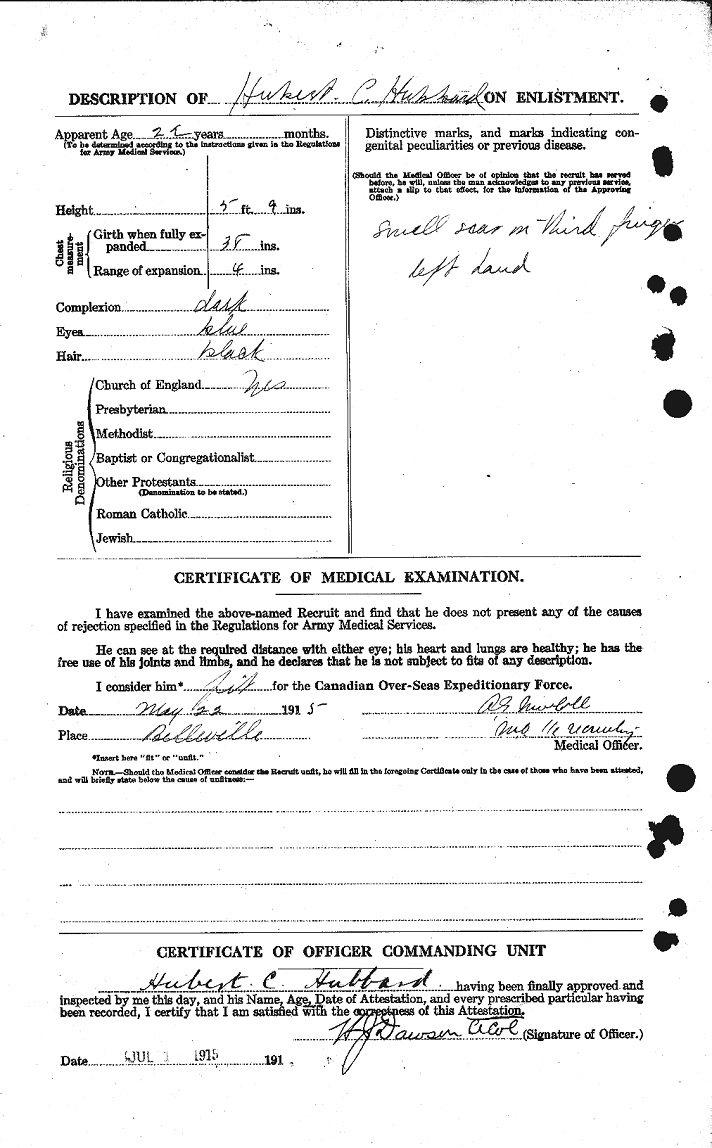 DESCRIPTION OF Hubert. C. Hubbard ON ENLISTMENT.
Apparent Age 21 years months.
(To be determined according to the instructions given in the Regulations
for Army Medical Services.)
Height 5 ft. 9 ins.
Chest
measure-
ment
Girth when fully ex-
panded 38 ins.
Range of expansion 4 ins.
Complexion dark
Eyes blue
Hair black
Religious
Denominations
Church of England Yes
Presbyterian
Methodist
Baptist or Congregationalist
Other Protestants
(Denomination to be stated.)
Roman Catholic
Jewish
Distinctive marks, and marks indicating con-
genital peculiarities or previous disease.
(Should the Medical Officer be of opinion that the recruit has served
before, he will, unless the man acknowledges to any previous service,
attach a slip to that effect, for the information of the Approving
Officer.)
Small scar on third finger
left hand
CERTIFICATE OF MEDICAL EXAMINATION.
I have examined the above-named Recruit and find that he does not present any of the causes
of rejection specified in the Regulations for Army Medical Services.
He can see at the required distance with either eye; his heart and lungs are healthy; he has the
free use of his joints and limbs, and he declares that he is not subject to fits of any description.
I consider him* fit for the Canadian Over-Seas Expeditionary Force.
Date May 22 1915
Place Belleville
M.O. i/c recruiting
Medical Officer.
*Insert here "fit" or "unfit."
NOTE.—Should the Medical Officer consider the Recruit unfit, he will fill in the foregoing Certificate only in the case of those who have been attested,
and will briefly state below the cause of unfitness:—
CERTIFICATE OF OFFICER COMMANDING UNIT
Hubert C Hubbard having been finally approved and
inspected by me this day, and his Name, Age, Date of Attestation, and every prescribed particular having
been recorded, I certify that I am satisfied with the correctness of this Attestation.
Dawson (Signature of Officer.)
Date JUL 1 1915 191